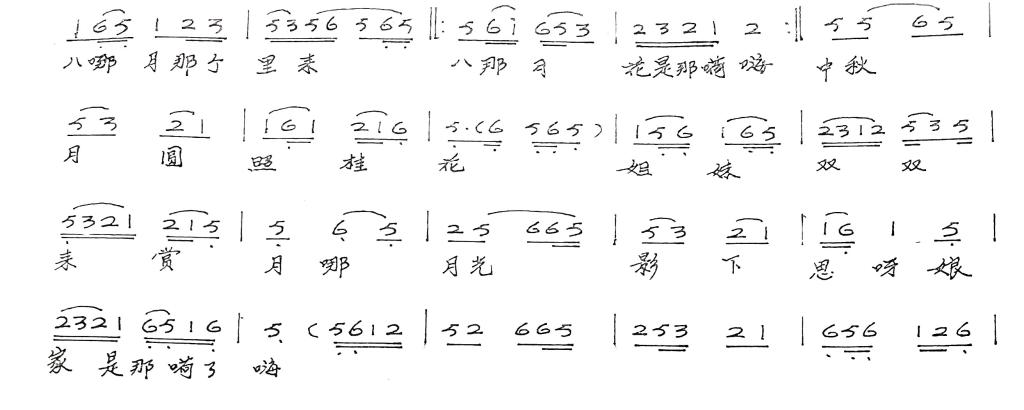 165 123 | 5356 565 ‖: 561 653 | 2321 2 :‖ 55 65 |
八哪 月那个 里来 八那月 花是那嗬嗨 中秋
53 21 | 161 216 | 5·(6 565) | 156 165 | 2312 535 |
月 圆 照 桂 花 姐 妹 双 双
5321 215 | 5 6 5 | 25 665 | 53 21 | 16 1 5 |
来 赏 月 哪 月光 影 下 思 呀 娘
2321 6516 | 5 (5612 | 52 665 | 253 21 | 656 126 |
家 是那 嗬了 嗨